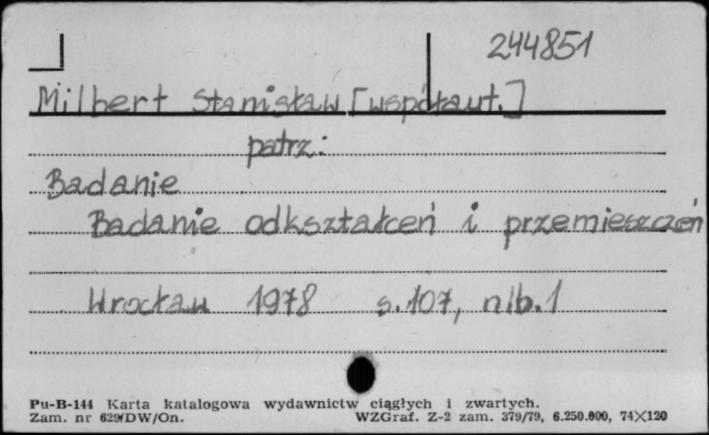 244851
Milbert Stanisław [współaut.]
patrz:
Badanie
Badanie odkształceń i przemieszczeń
Wrocław 1978 s.107, nlb.1
Pu-B-144 Karta katalogowa wydawnictw ciągłych i zwartych.
Zam. nr 629/DW/On. WZGraf. Z-2 zam. 379/79, 6.250.000, 74×120